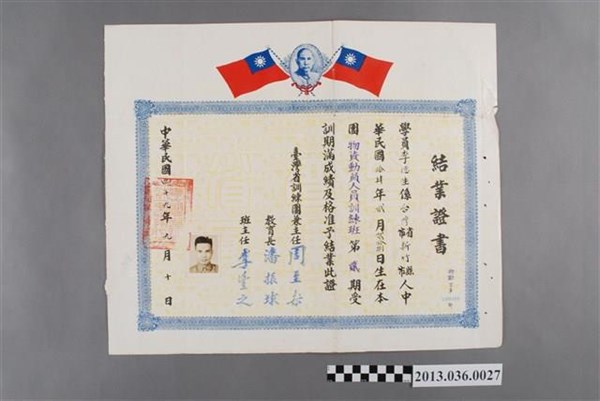 結業證書
學員李德生係台灣省新竹縣市人中
華民國拾肆年貳月日生在本
團物資動員人員訓練班第貳期受
訓期滿成績及格准予結業此證
臺灣省訓練團兼主任周至柔
教育長潘振球
班主任李
中華民國四十九年九月十日
2013.036.0027